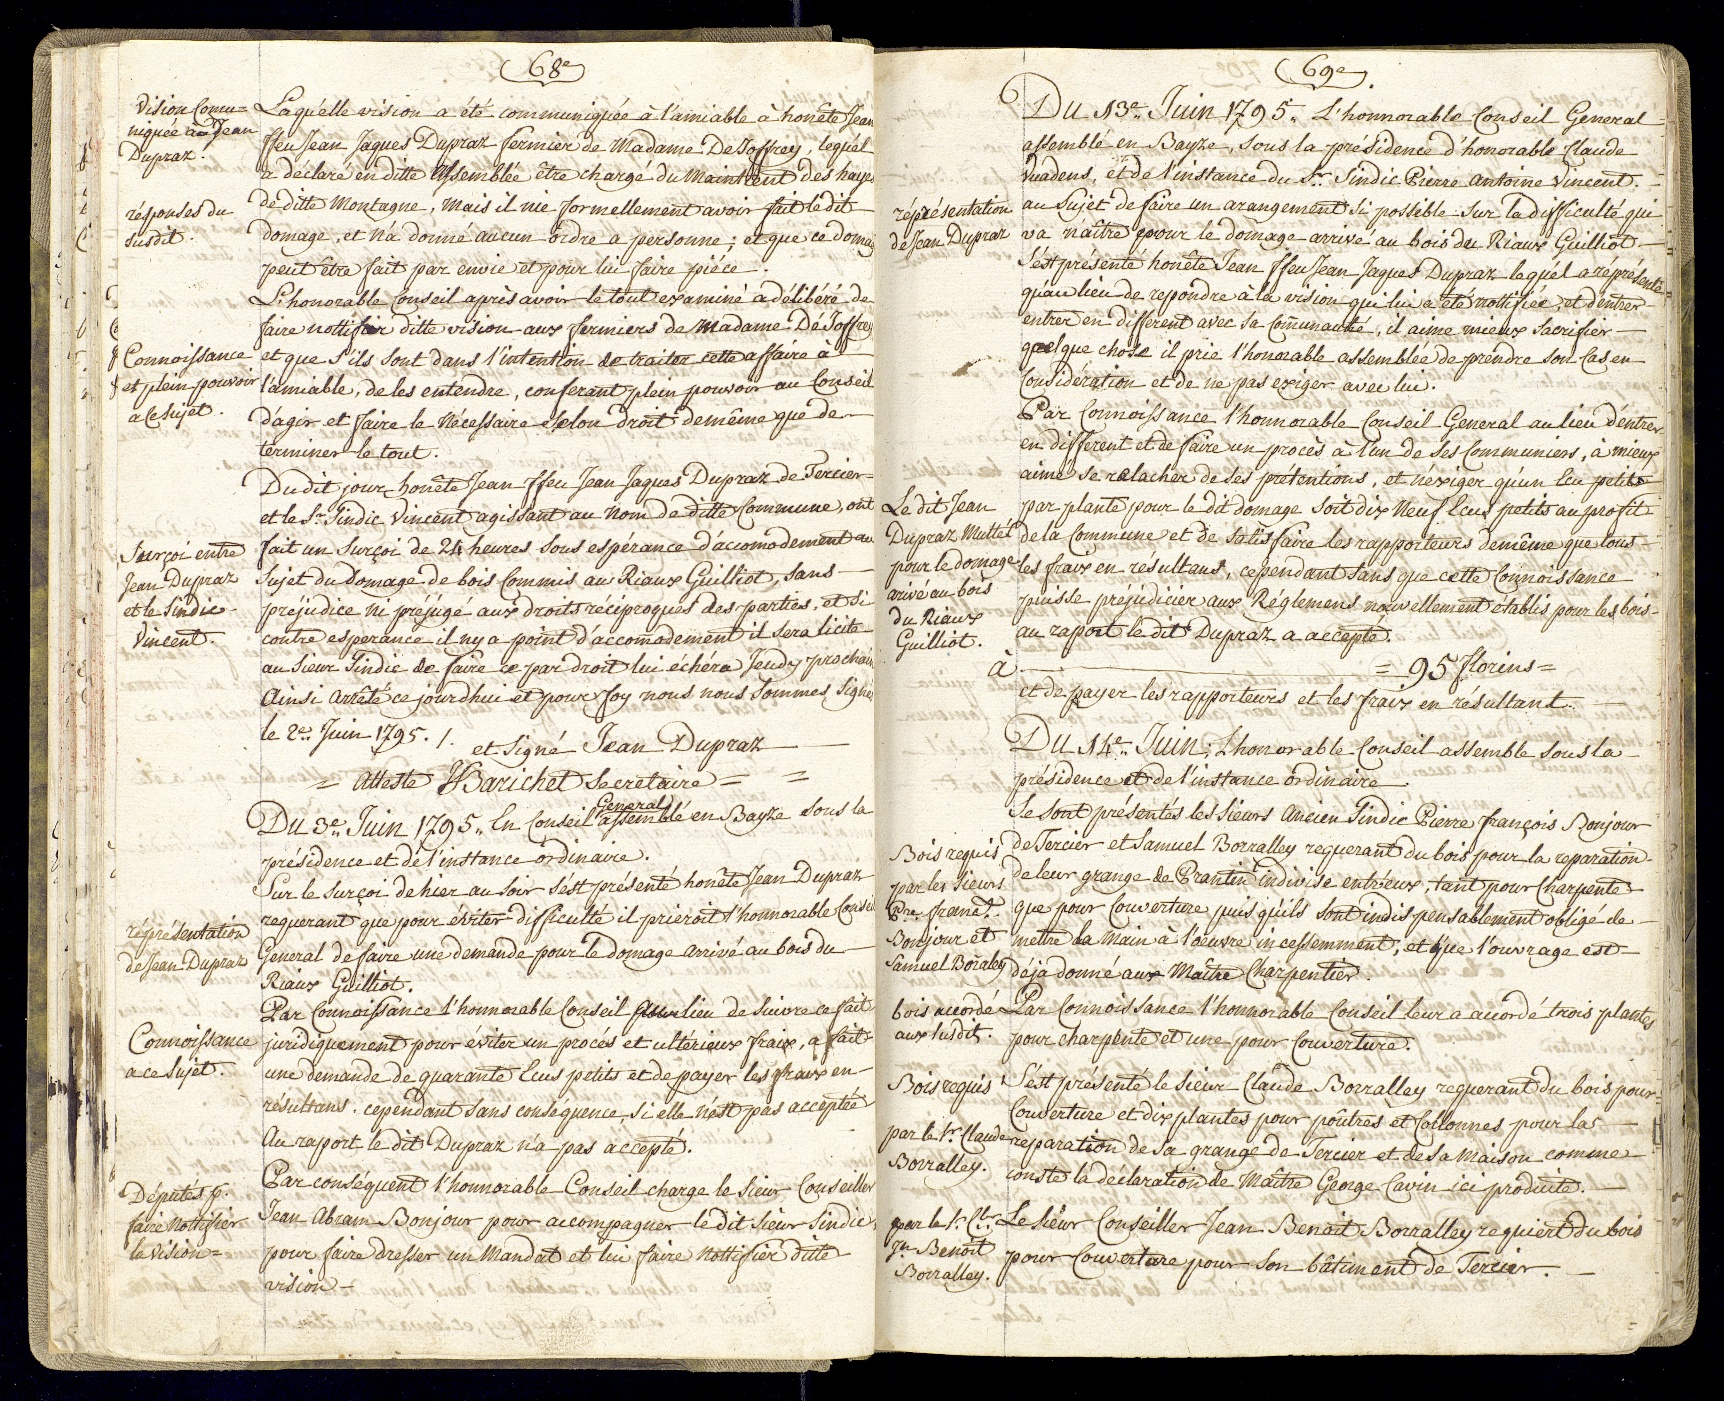 68e
Vision Comu=
niquée au Jean
Dupraz.
Laquelle vision a été communiquée à l'amiable à honête Jean
ffeu Jean Jaques Dupraz fermier de Madame De Joffrey, lequel
a déclaré en ditte Assemblée être chargé du Maintient des hayes
de ditte Montagne, mais il nie formellement avoir fait le dit
réponses du
susdit.
domage, et n'a donné aucun ordre a personne; et que ce domag
peut être fait par envie et pour lui faire piéce.
L'honorable Conseil après avoir le tout examiné a délibéré de
faire nottifier ditte vision aux fermiers de Madame Dé Joffrey
Connoissance
et plein pouvoir
a ce sujet.
et que s'ils sont dans l'intention de traiter cette affaire à
l'amiable, de les entendre, conferant plein pouvoir au Conseil
d'agir et faire le Nécessaire selon droit demême que de
terminer le tout.
Du dit jour honête Jean ffeu Jean Jaques Dupraz de Tercier
et le Sr. Sindic Vincent agissant au nom de ditte Commune, ont
Surçoi entre
Jean Dupraz
et le Sindic
Vincent.
fait un surçoi de 24 heures sous espérance d'accomodement au
sujet du Domage de bois Commis au Riaux Guilliot, sans
préjudice ni préjugé aux droits réciproques des parties, et si
contre esperance il ny a point d'accomodement il sera licite
au Sieur Sindic de faire ce par droit lui échéra Jeudy prochain
Ainsi arrêté ce jourdhui et pour foy nous nous sommes Signés
le 2e. Juin 1795. /. et signé Jean Dupraz
= Atteste Barichet Secretaire = =
Du 3e. Juin 1795,, En Conseil General assemblé en Bayze sous la
présidence et de l'instance ordinaire.
Sur le surçoi de hier au soir s'ést présenté honête Jean Dupraz
réprésentation
de Jean Dupraz
requerant que pour éviter difficulté il prieroit l'honnorable Conseil
General de faire une demande pour le domage arrivé au bois du
Riaux Guilliot.
Connoissance
a ce sujet.
Par Connoissance l'honnorable Conseil au lieu de suivre ce fait
juridiquement pour éviter un procés et ultérieux fraix, a fait
une demande de quarante Ecus petits et de payer les fraix en
résultans. cependant sans conséquence, si elle n'ést pas acceptée
Au raport le dit Dupraz n'a pas accepté.
Députés p.
faire Nottifier
la vision=
Par conséquent l'honnorable Conseil charge le Sieur Conseiller
Jean Abram Bonjour pour accompagner le dit Sieur Sindic
pour faire dresser un Mandat et lui faire Nottifier ditte
vision
69e
Du 13e. Juin 1795,, L'honnorable Conseil General
assemblé en Bayze, sous la présidence d'honorable Claude
Vuadens, et de l'instance du Sr. Sindic Pierre Antoine Vincent.
réprésentation
de Jean Dupraz
au sujet de faire un arangement si possible sur la difficulté qui
va naître pour le domage arrivé au bois du Riaux Guilliot
S'ést présenté honête Jean ffeu Jean Jaques Dupraz lequel a réprésenté
qu'au lieu de repondre à la vision qui lui a été nottifiée, et d'entrer
entrer en different avec sa Communauté, il aime mieux sacrifier
quelque chose il prie l'honorable assemblée de prendre son Cas en
Considération et de ne pas exiger avec lui.
Par Connoissance l'honnorable Conseil General au lieu d'entrer
en different et de faire un procès à l'un de ses Communiers, à mieux
aimé se relacher de ses prétentions, et n'exiger qu'un Ecu petits
Le dit Jean
Dupraz Mutté
pour le domage
arivé au bois
du Riaux
Guilliot.
par plante pour le dit domage soit dix Neuf Ecus petits au profit
de la Commune et de Satisfaire les rapporteurs demême que tous
les fraix en résultans, cependant sans que cette Connoissance
puisse préjudicier aux Réglemens nouvellement établis pour les bois
au raport le dit Dupraz a accepté.
à = 95 florins =
et de payer les rapporteurs et les fraix en résultant.
Du 14e. Juin; L'honorable Conseil assemble sous la
présidence et de l'instance ordinaire
Se sont présentés les Sieurs Ancien Sindic Pierre françois Bonjour
Bois requis
par les Sieurs
Pre. franc̃s.
Bonjour et
Samuel Boraley
de Tercier et Samuel Borralley requerant du bois pour la reparation
de leur grange de Prantin indivise entr'eux, tant pour Charpente
que pour Couverture puis qu'ils sont indispensablement obligé de
mettre la Main à l'oeuvre incessemment, et que l'ouvrage est
déja donné aux Maître Charpentier.
bois accordé
aux susdit.
Par Connoissance l'honnorable Conseil leur a accordé trois plantes
pour charpente et une pour Couverture.
Bois requis
par le Sr. Claude
Borralley.
S'ést présenté le Sieur Claude Borralley requerant du bois pour
Couverture et dix plantes pour poûtres et Collonnes pour la
reparation de sa grange de Tercier et de sa Maison comme
conste la déclaration de Maître George Cavin ici produite.
par le Sr. Clr.
Jn. Benoit
Borralley.
Le Sieur Conseiller Jean Benoit Borralley requiert du bois
pour Couverture pour son bâtiment de Tercier.